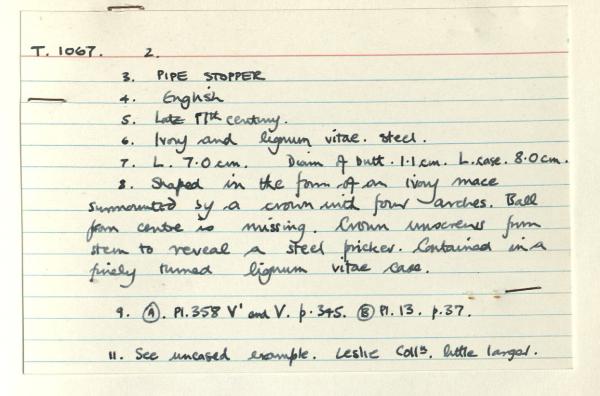 T. 1067. 2.
3. PIPE STOPPER
4. English
5. Late 17th century.
6. Ivory and lignum vitae. steel.
7. L. 7.0cm. Diam of butt. 1.1cm. L.case. 8.0cm.
8. Shaped in the form of an Ivory mace
surmounted by a crown with four arches. Ball
from centre is missing. Crown unscrews from
stem to reveal a steel pricker. Contained in a
finely turned lignum vitae case.
9. Ⓐ. Pl.358 V' and V. p.345. Ⓑ Pl. 13. p.37.
11. See uncased example. Leslie Coll. little larger.